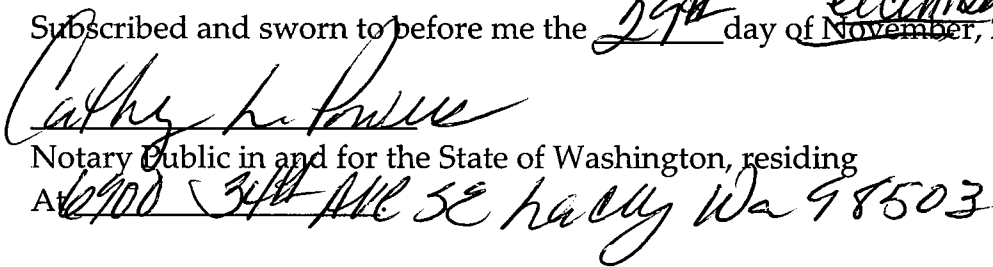 Subscribed and sworn to before me the 29th day of November,
Cathy L. Powers
Notary Public in and for the State of Washington, residing
At 6900 34th Ave SE Lacey Wa 98503